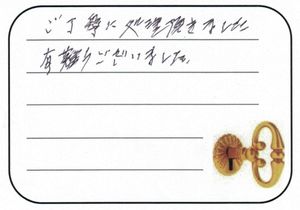 ご丁寧に処理頂きました
有難うございました。